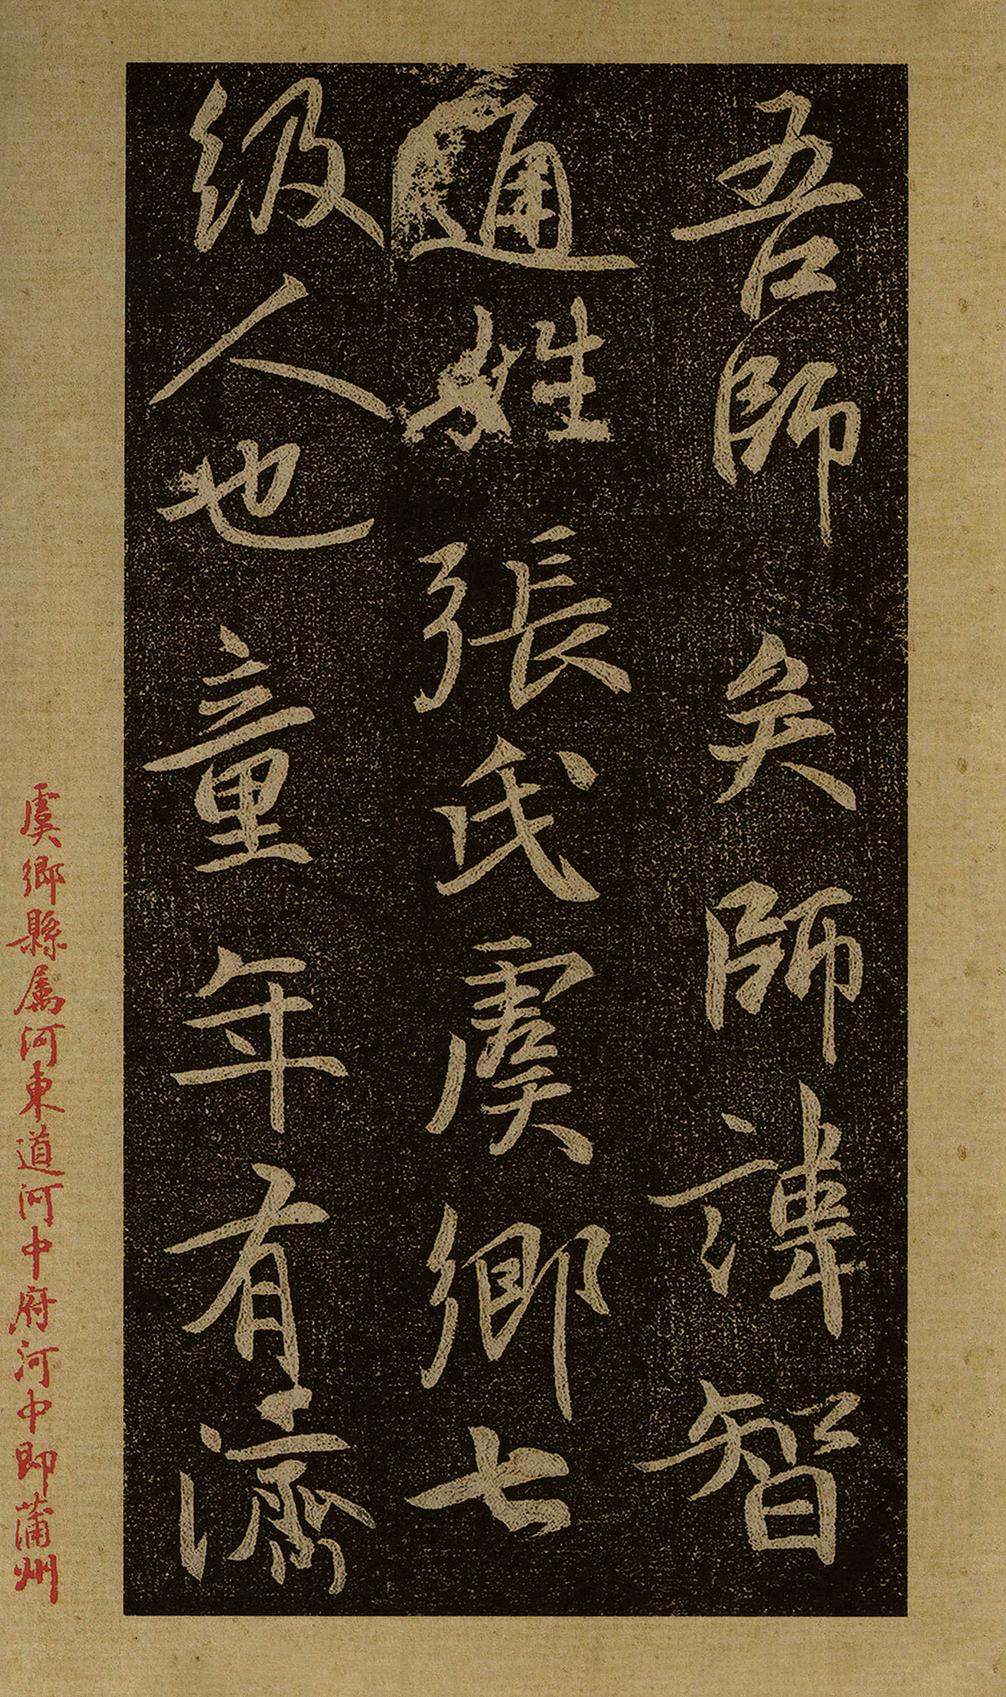 吾師矣師諱智
通姓張氏虞鄉七
级人也童年有濟
虞鄉縣属河東道河中府河中即蒲州